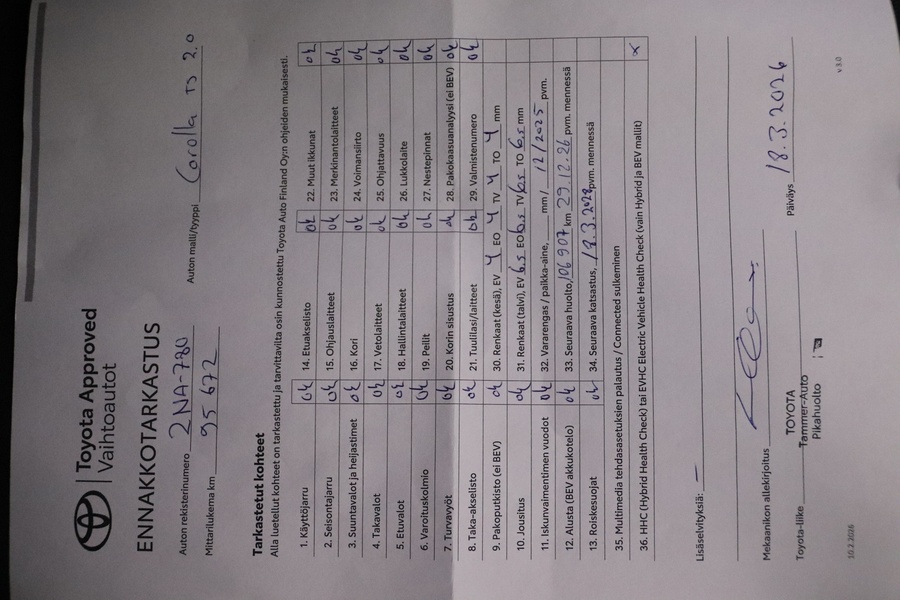 Toyota Approved
Vaihtoautot
ENNAKKOTARKASTUS
Auton rekisterinumero 2NA-780 Auton malli/tyyppi Corolla TS 2.0
Mittarilukema km 95 672
Tarkastetut kohteet
Alla luetellut kohteet on tarkastettu ja tarvittavilta osin kunnostettu Toyota Auto Finland Oy:n ohjeiden mukaisesti.
1. Käyttöjarru ok 14. Etuakselisto ok 22. Muut ikkunat ok
2. Seisontajarru ok 15. Ohjauslaitteet ok 23. Merkinantolaitteet ok
3. Suuntavalot ja heijastimet ok 16. Kori ok 24. Voimansiirto ok
4. Takavalot ok 17. Vetolaitteet ok 25. Ohjattavuus ok
5. Etuvalot ok 18. Hallintalaitteet ok 26. Lukkolaite ok
6. Varoituskolmio ok 19. Peilit ok 27. Nestepinnat ok
7. Turvavyöt ok 20. Korin sisustus ok 28. Pakokaasuanalyysi (ei BEV) ok
8. Taka-akselisto ok 21. Tuulilasi/laitteet ok 29. Valmistenumero ok
9. Pakoputkisto (ei BEV) ok 30. Renkaat (kesä), EV 4 EO 4 TV 4 TO 4 mm
10. Jousitus ok 31. Renkaat (talvi), EV 6.5 EO 6.5 TV 6.5 TO 6.5 mm
11. Iskunvaimentimen vuodot ok 32. Vararengas / paikka-aine, mm / 12/2025 pvm.
12. Alusta (BEV akkukotelo) ok 33. Seuraava huolto, 106907 km 29.12.26 pvm. mennessä
13. Roiskesuojat ok 34. Seuraava katsastus, 18.3.2028 pvm. mennessä
35. Multimedia tehdasasetuksien palautus / Connected sulkeminen
36. HHC (Hybrid Health Check) tai EVHC Electric Vehicle Health Check (vain Hybrid ja BEV mallit) x
Lisäselvityksiä: —
Mekaanikon allekirjoitus Päiväys 18.3.2026
Toyota-liike TOYOTA
Tammer-Auto
Pikahuolto
10.2.2026 v 3.0